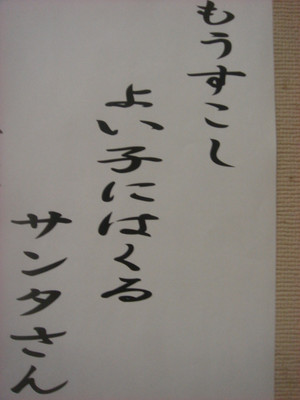 もうすこし
よい子にはくる
サンタさん